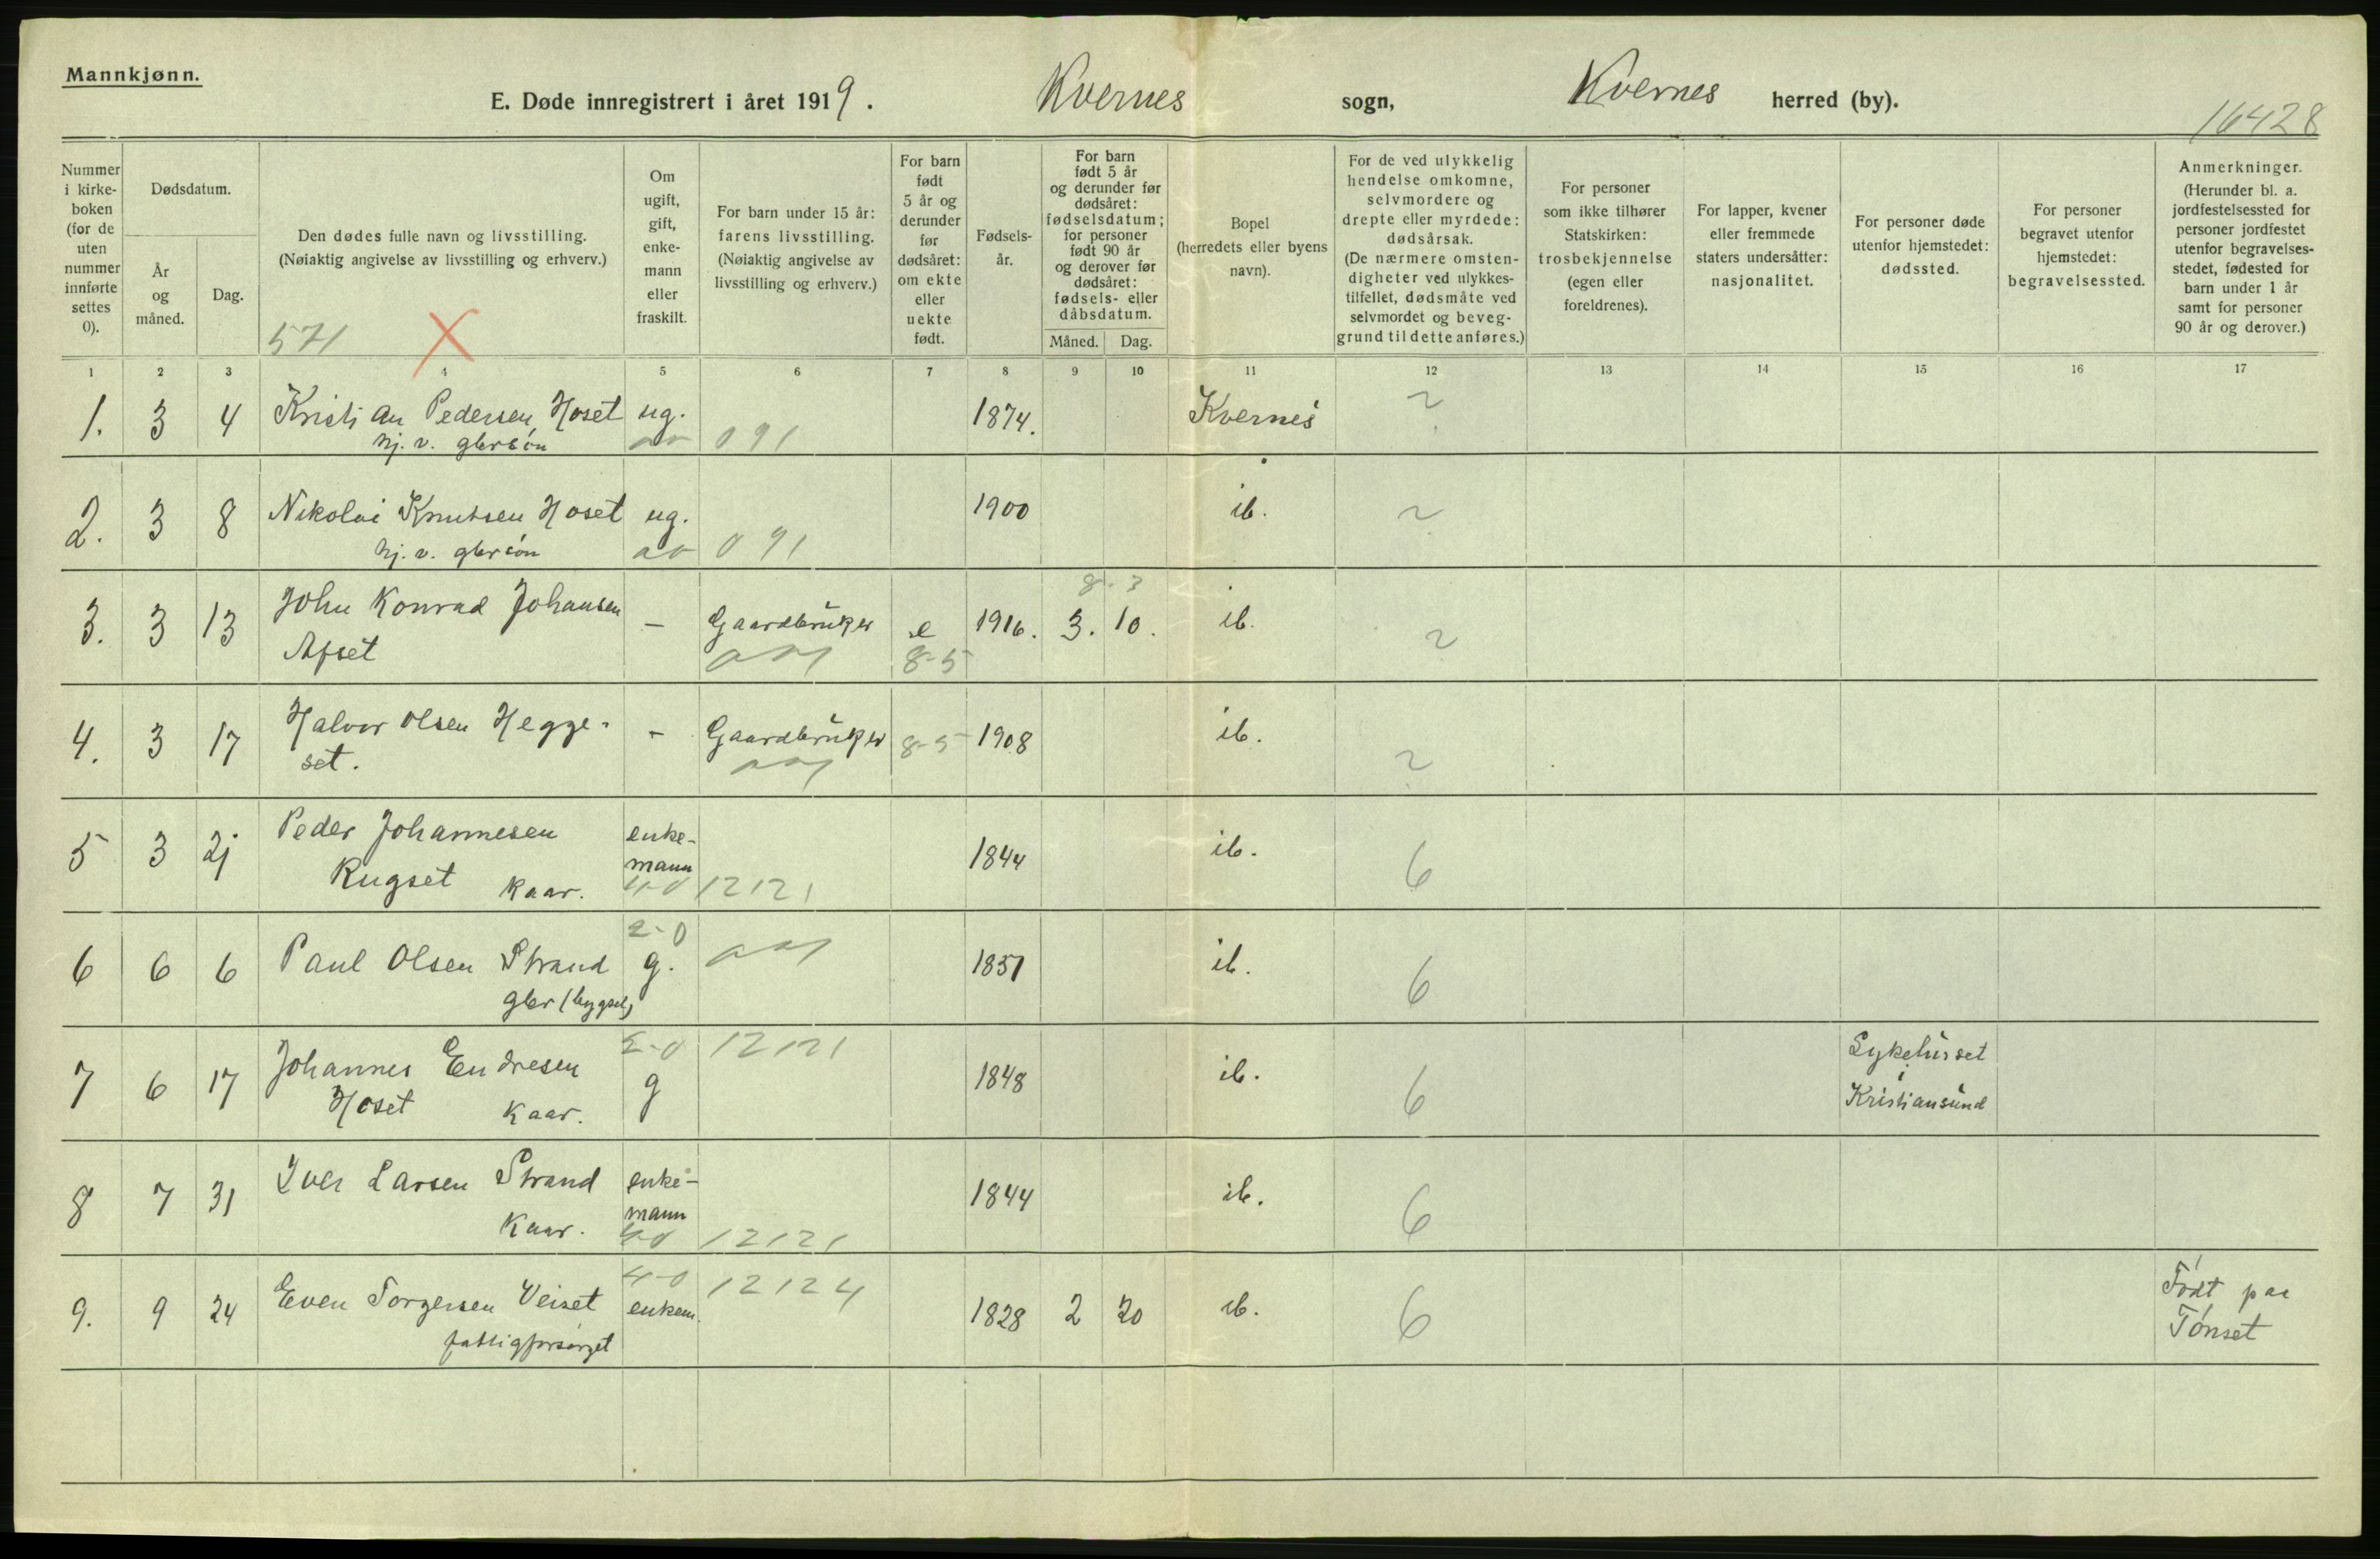 Mannkjønn.
E. Døde innregistrert i året 1919. Kvernes sogn, Kvernes herred (by).
16428
Nummer i kirke- boken (for de uten nummer innførte settes 0).
Dødsdatum.
År og måned.
Dag.
Den dødes fulle navn og livsstilling.
(Nøiaktig angivelse av livsstilling og erhverv.)
571 X
Om ugift, gift, enke- mann eller fraskilt.
For barn under 15 år: farens livsstilling. (Nøiaktig angivelse av livsstilling og erhverv.)
For barn født 5 år og derunder før dødsåret: om ekte eller uekte født.
Fødsels- år.
For barn født 5 år og derunder før dødsåret: fødselsdatum; for personer født 90 år og derover før dødsåret: fødsels- eller dåbsdatum.
Måned. Dag.
Bopel (herredets eller byens navn).
For de ved ulykkelig hendelse omkomne, selvmordere og drepte eller myrdede: dødsårsak. (De nærmere omsten- digheter ved ulykkes- tilfellet, dødsmåte ved selvmordet og beveg- grund til dette anføres.)
For personer som ikke tilhører Statskirken: trosbekjennelse (egen eller foreldrenes).
For lapper, kvener eller fremmede staters undersåtter: nasjonalitet.
For personer døde utenfor hjemstedet: dødssted.
For personer begravet utenfor hjemstedet: begravelsessted.
Anmerkninger. (Herunder bl. a. jordfestelsessted for personer jordfestet utenfor begravelses- stedet, fødested for barn under 1 år samt for personer 90 år og derover.)
1 2 3 4 5 6 7 8 9 10 11 12 13 14 15 16 17
1. 3 4 Kristian Pedersen Hoset ug. 1874. Kvernes
hj. v. gbrsøn 091
2. 3 8 Nikolai Knutsen Hoset ug. 1900 ib.
hj. v. gbrsøn 091
8 - 3
3. 3 13 John Konrad Johansen — Gaardbruker e 1916. 3. 10. ib.
Afset 8-5
4. 3 17 Halvor Olsen Hegge- — Gaardbruker 8-5 1908 ib.
set.
5 3 21 Peder Johannesen enke- 1844 ib. 6
Rugset kaar. mann 4-0 12121
2-0
6 6 6 Paul Olsen Strand g. 1851 ib. 6
gbr (bygsel)
2-0 12121
7 6 17 Johannes Endresen g 1848 ib. 6 Sykehuset i
Hoset kaar. Kristiansund
8 7 31 Iver Larsen Strand enke- 1844 ib. 6
kaar. mann 4-0 12121
4-0 12124
9. 9 24 Even Torgersen Veiset enkem. 1828 2 20 ib. 6 Født paa
fattigforsørget Tønset